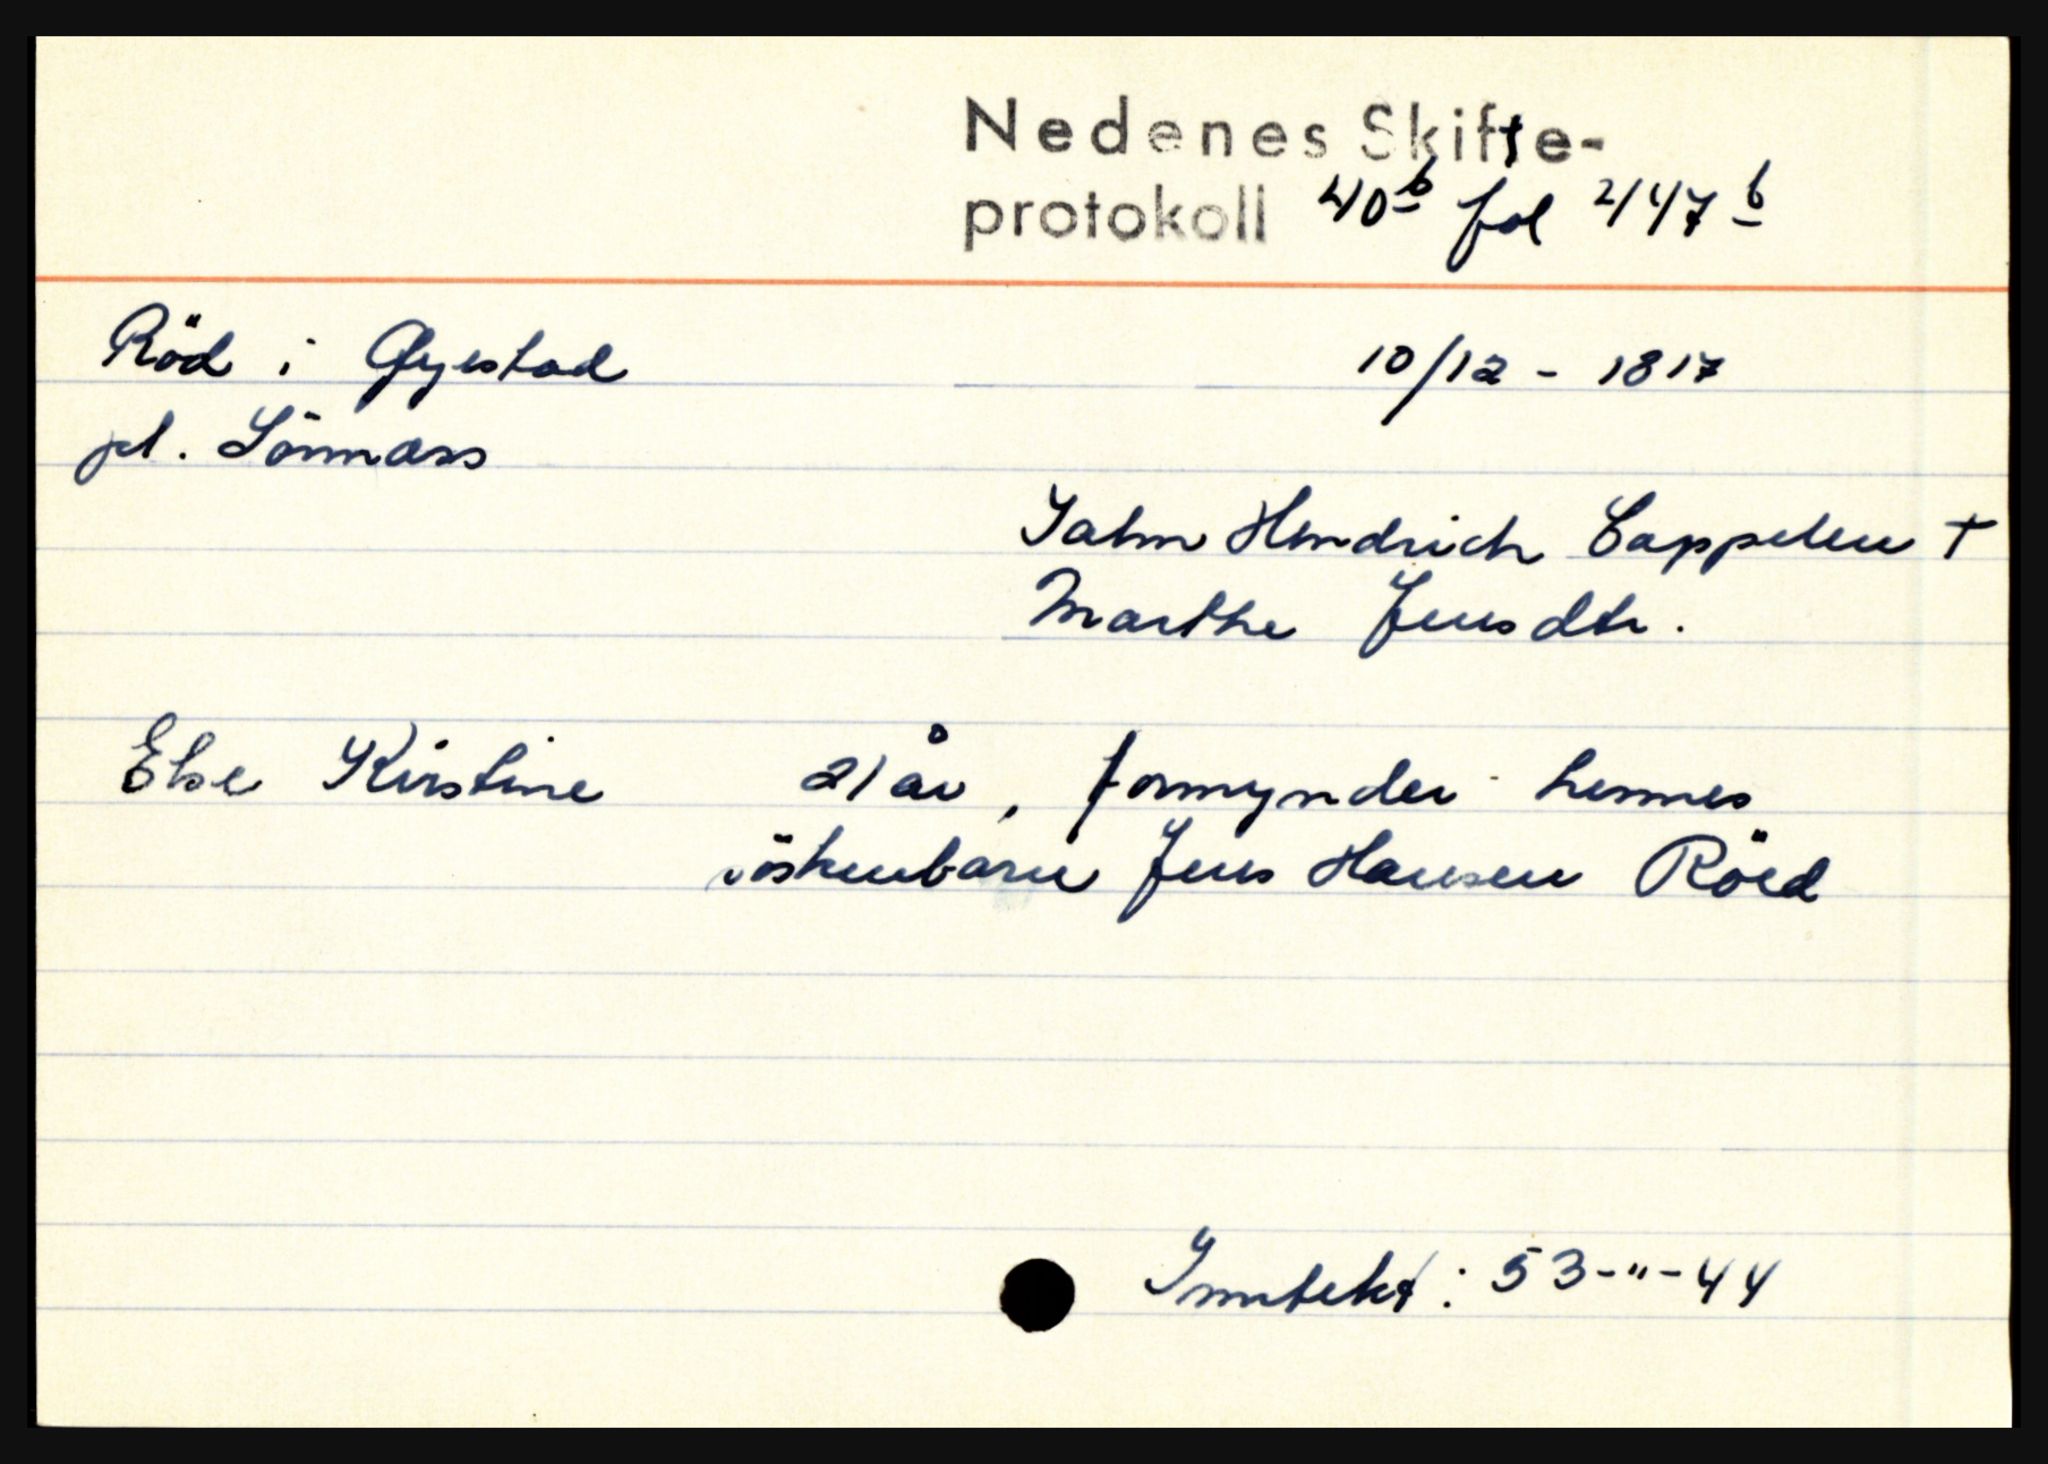 Nedenes Skifte-
protokoll 40b fol 247b
Röd i Gjestad 10/12 - 1817
pl. Sörnæss
Jahn Hendrich Cappelen +
Marthe Jensdtr.
Else Kirstine 21 år, formynder hennes
söskenbarn Jens Hansen Röed
Inntekt: 53-"-44